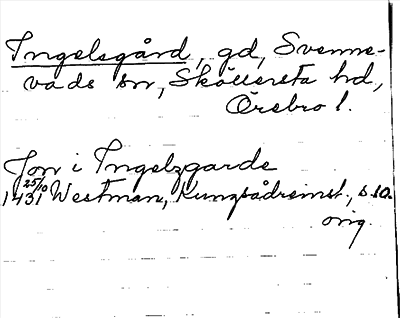 Ingelsgård, gd, Svenne-
vads sn, Sköllersta hd,
Örebro l.
Jon i Ingelzgarde
25/10
1431 Westman, Kungsådreinst., s 10.
orig.